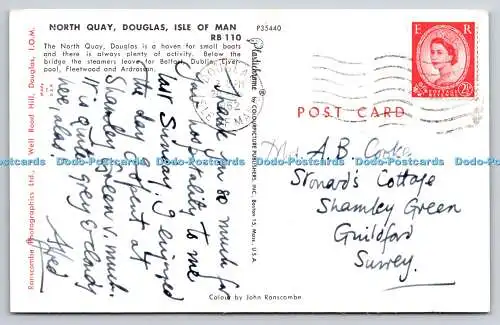 NORTH QUAY, DOUGLAS, ISLE OF MAN
RB 110
The North Quay, Douglas is a haven for small boats
and there is always plenty of activity. Below the
bridge the steamers leave for Belfast, Dublin, Liver-
pool, Fleetwood and Ardrossan.
P35440
Ranscombe Photographics Ltd., Well Road Hill, Douglas, I.O.M.
Thank you so much for
your hospitality to me
last Sunday. I enjoyed
the day I spent at
Shamley Green v. much.
It is quite grey & cloudy
here alas!
Alfred
Colour by John Ranscombe
Plastichrome ® by COLOURPICTURE PUBLISHERS, INC. Boston 15, Mass., U.S.A.
DOUGLAS
ISLE OF MAN
E R
POSTAGE REVENUE
2½
POST CARD
Mrs A.B.
Stonard's Cottage
Shamley Green
Guildford
Surrey.
Dodo-Postcards Dodo-Postcards Dodo-Postcards Dodo-Postcards Dodo-Postcards Dodo-Postcards